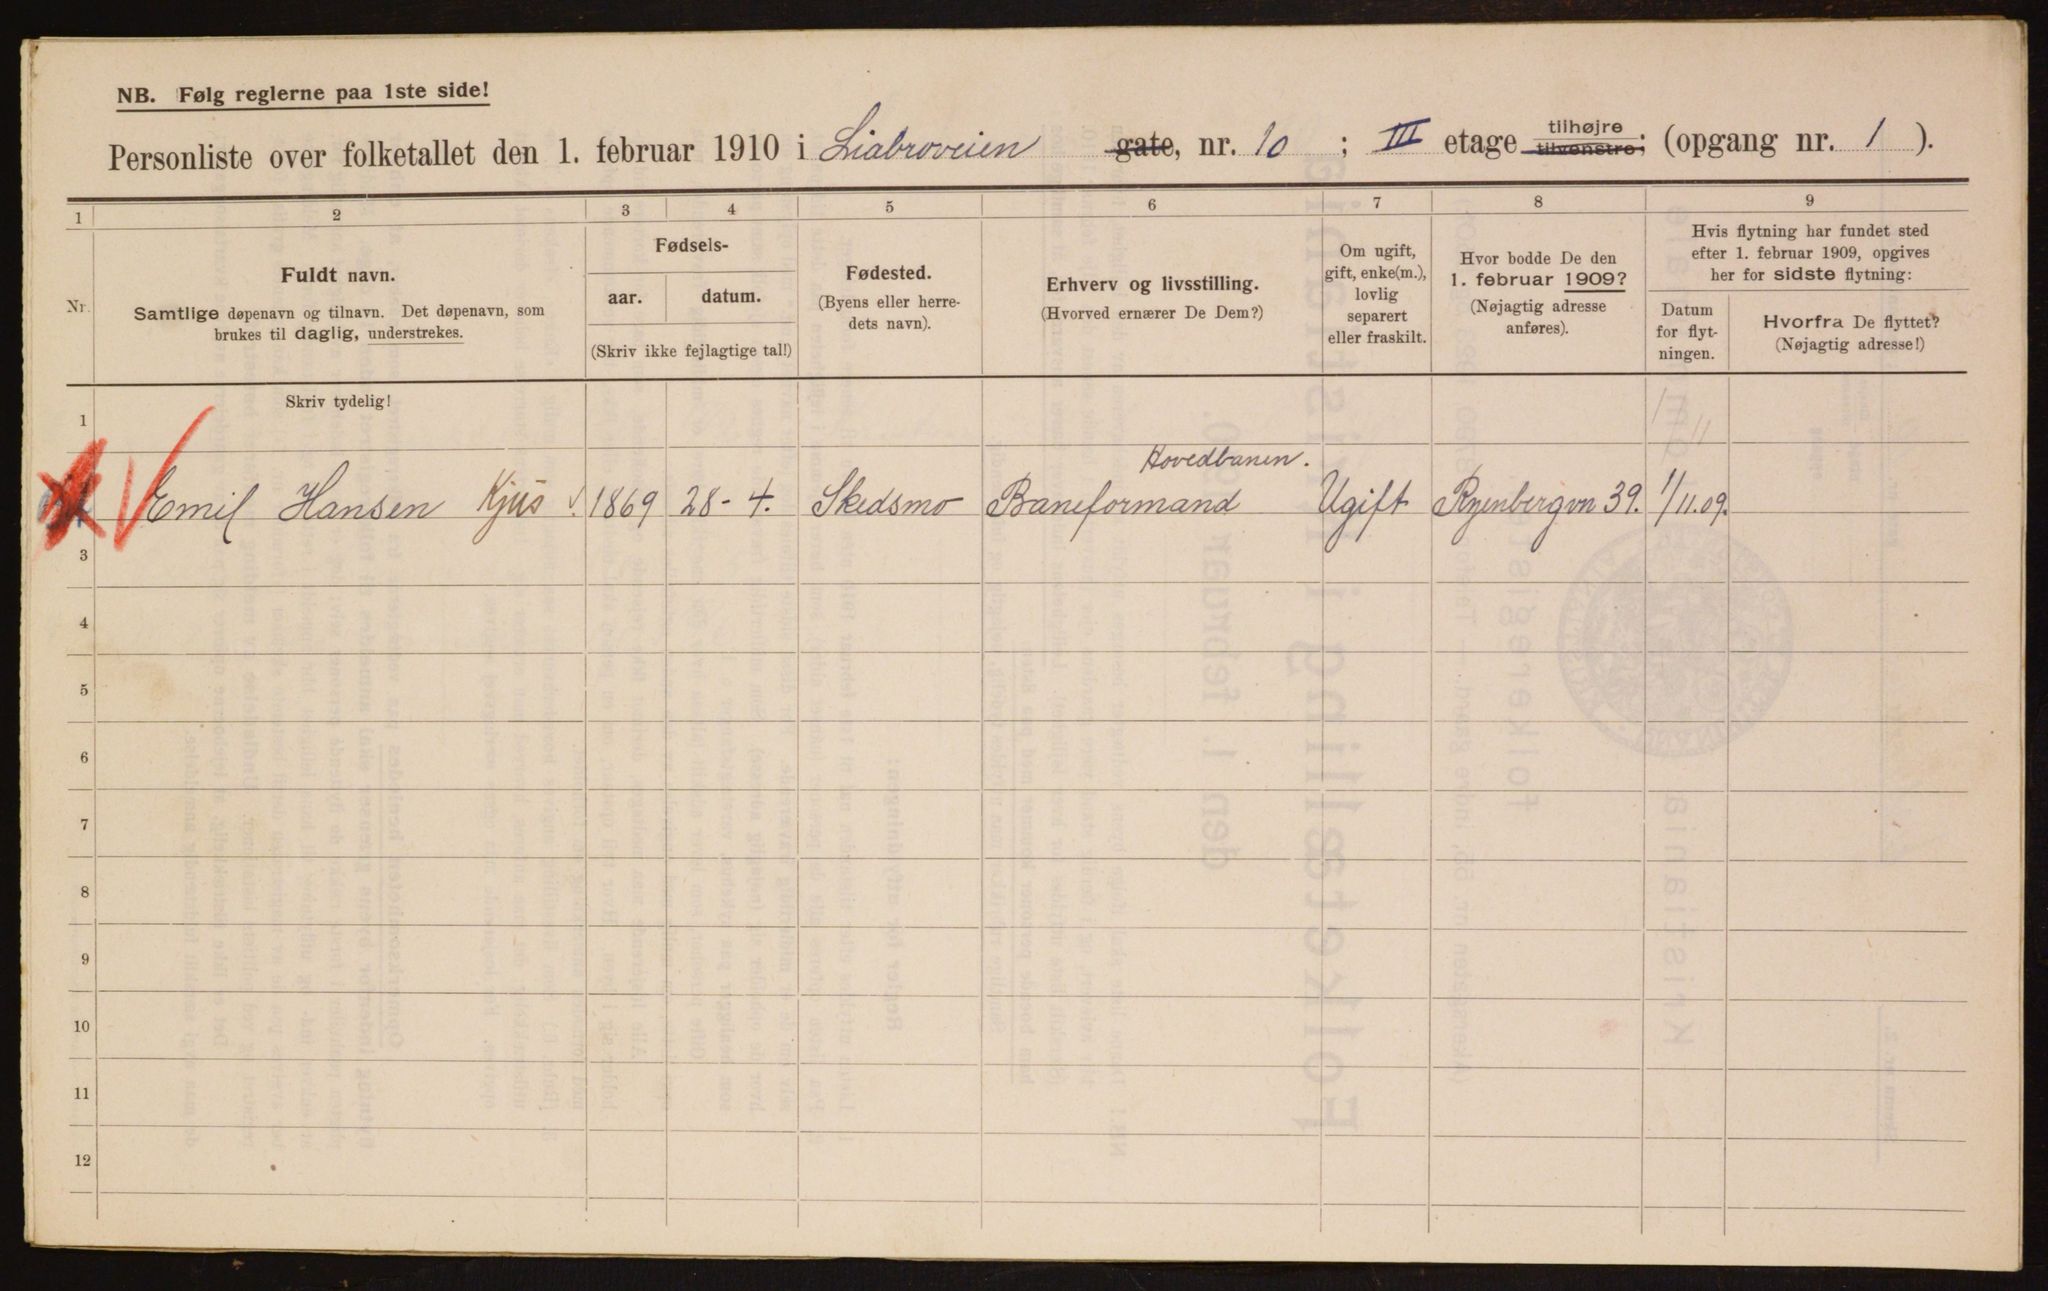 NB. Følg reglerne paa 1ste side!
Personliste over folketallet den 1. februar 1910 i Liabroveien gate, nr. 10 ; III etage tilhøjre tilvenstre; (opgang nr. 1 ).
1 2 3 4 5 6 7 8 9
Nr.
Fuldt navn.
Samtlige døpenavn og tilnavn. Det døpenavn, som
brukes til daglig, understrekes.
Fødsels-
aar. datum.
(Skriv ikke fejlagtige tal!)
Fødested.
(Byens eller herre-
dets navn).
Erhverv og livsstilling.
(Hvorved ernærer De Dem?)
Om ugift,
gift, enke(m.),
lovlig
separert
eller fraskilt.
Hvor bodde De den
1. februar 1909?
(Nøjagtig adresse
anføres).
Hvis flytning har fundet sted
efter 1. februar 1909, opgives
her for sidste flytning:
Datum
for flyt-
ningen.
Hvorfra De flyttet?
(Nøjagtig adresse!)
Skriv tydelig!
1
Hovedbanen.
Emil Hansen Kjus 1869 28-4. Skedsmo Baneformand Ugift Ryenbergvn 39. 1/11.09.
3
4
5
6
7
8
9
10
11
12